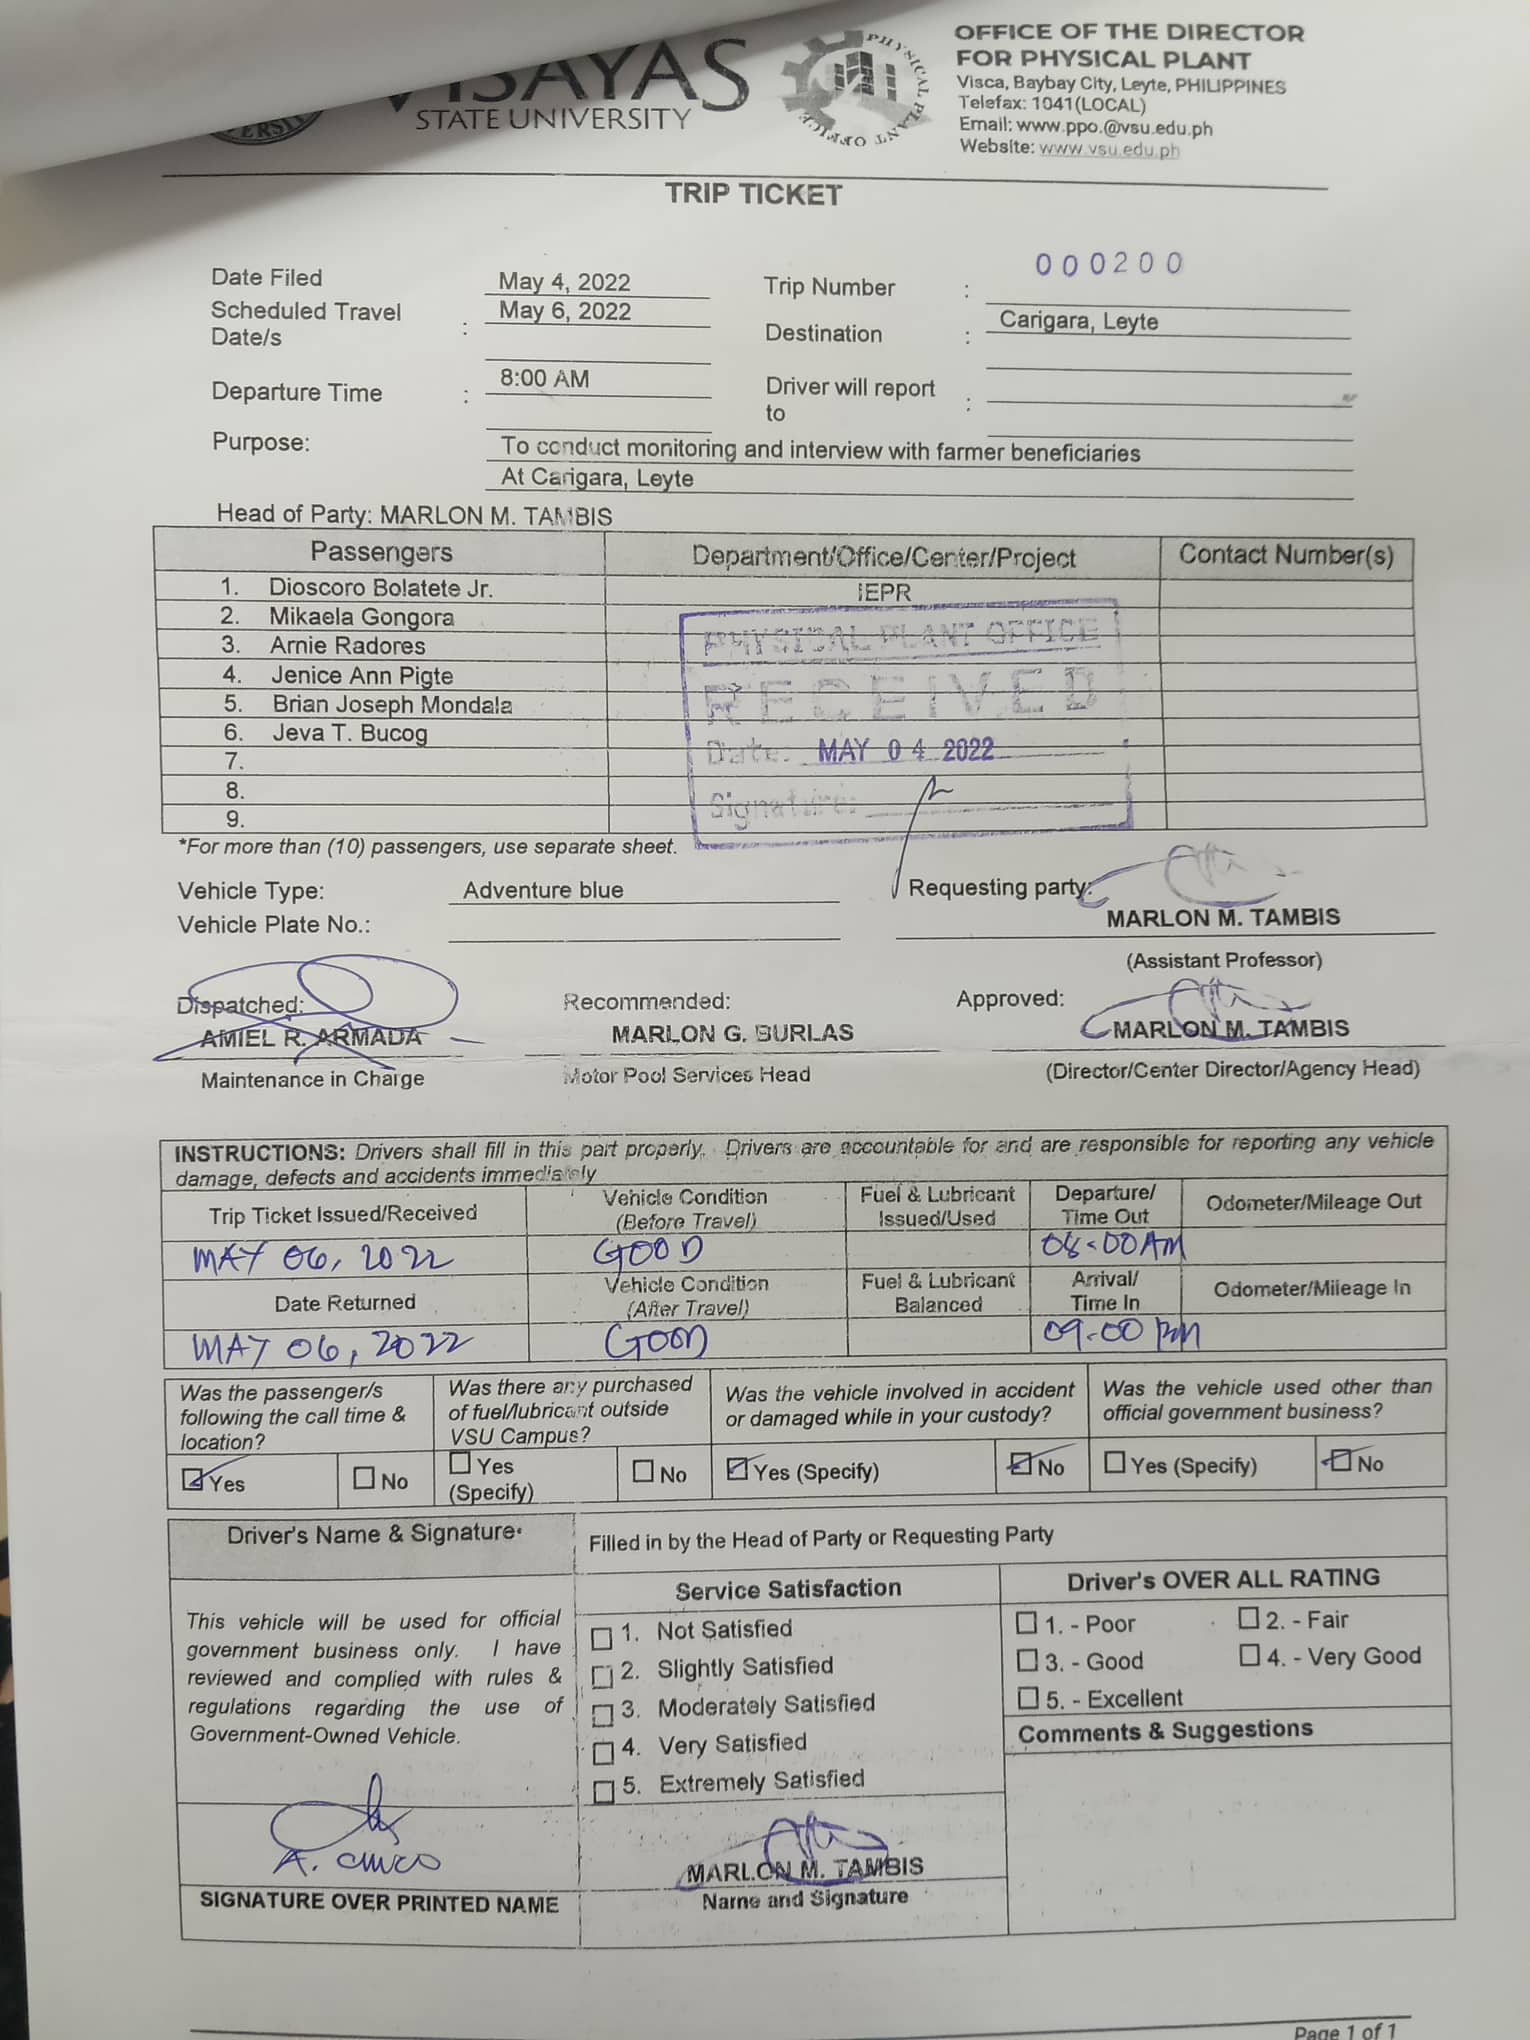 VISAYAS
STATE UNIVERSITY
PHYSICAL PLANT OFFICE
OFFICE OF THE DIRECTOR
FOR PHYSICAL PLANT
Visca, Baybay City, Leyte, PHILIPPINES
Telefax: 1041(LOCAL)
Email: www.ppo.@vsu.edu.ph
Website: www.vsu.edu.ph
TRIP TICKET
000200
Date Filed May 4, 2022 Trip Number :
Scheduled Travel Date/s : May 6, 2022 Destination : Carigara, Leyte
Departure Time : 8:00 AM Driver will report to :
Purpose: To conduct monitoring and interview with farmer beneficiaries
At Carigara, Leyte
Head of Party: MARLON M. TAMBIS
Passengers Department/Office/Center/Project Contact Number(s)
1. Dioscoro Bolatete Jr. IEPR
2. Mikaela Gongora
3. Arnie Radores
4. Jenice Ann Pigte
5. Brian Joseph Mondala
6. Jeva T. Bucog
7.
8.
9.
PHYSICAL PLANT OFFICE
RECEIVED
Date: MAY 04 2022
Signature:
*For more than (10) passengers, use separate sheet.
Vehicle Type: Adventure blue Requesting party:
Vehicle Plate No.: MARLON M. TAMBIS
(Assistant Professor)
Dispatched: Recommended: Approved:
AMIEL R. ARMADA MARLON G. BURLAS MARLON M. TAMBIS
Maintenance in Charge Motor Pool Services Head (Director/Center Director/Agency Head)
INSTRUCTIONS: Drivers shall fill in this part properly. Drivers are accountable for and are responsible for reporting any vehicle
damage, defects and accidents immediately
Trip Ticket Issued/Received Vehicle Condition (Before Travel) Fuel & Lubricant Issued/Used Departure/ Time Out Odometer/Mileage Out
MAY 06, 2022 GOOD 08:00AM
Date Returned Vehicle Condition (After Travel) Fuel & Lubricant Balanced Arrival/ Time In Odometer/Mileage In
MAY 06, 2022 GOOD 09:00 PM
Was the passenger/s following the call time & location? Was there any purchased of fuel/lubricant outside VSU Campus? Was the vehicle involved in accident or damaged while in your custody? Was the vehicle used other than official government business?
Yes No Yes (Specify) No Yes (Specify) No Yes (Specify) No
Driver's Name & Signature Filled in by the Head of Party or Requesting Party
Service Satisfaction Driver's OVER ALL RATING
This vehicle will be used for official
government business only. I have
reviewed and complied with rules &
regulations regarding the use of
Government-Owned Vehicle.
1. Not Satisfied
2. Slightly Satisfied
3. Moderately Satisfied
4. Very Satisfied
5. Extremely Satisfied
1. - Poor 2. - Fair
3. - Good 4. - Very Good
5. - Excellent
Comments & Suggestions
A.
MARLON M. TAMBIS
SIGNATURE OVER PRINTED NAME Name and Signature
Page 1 of 1